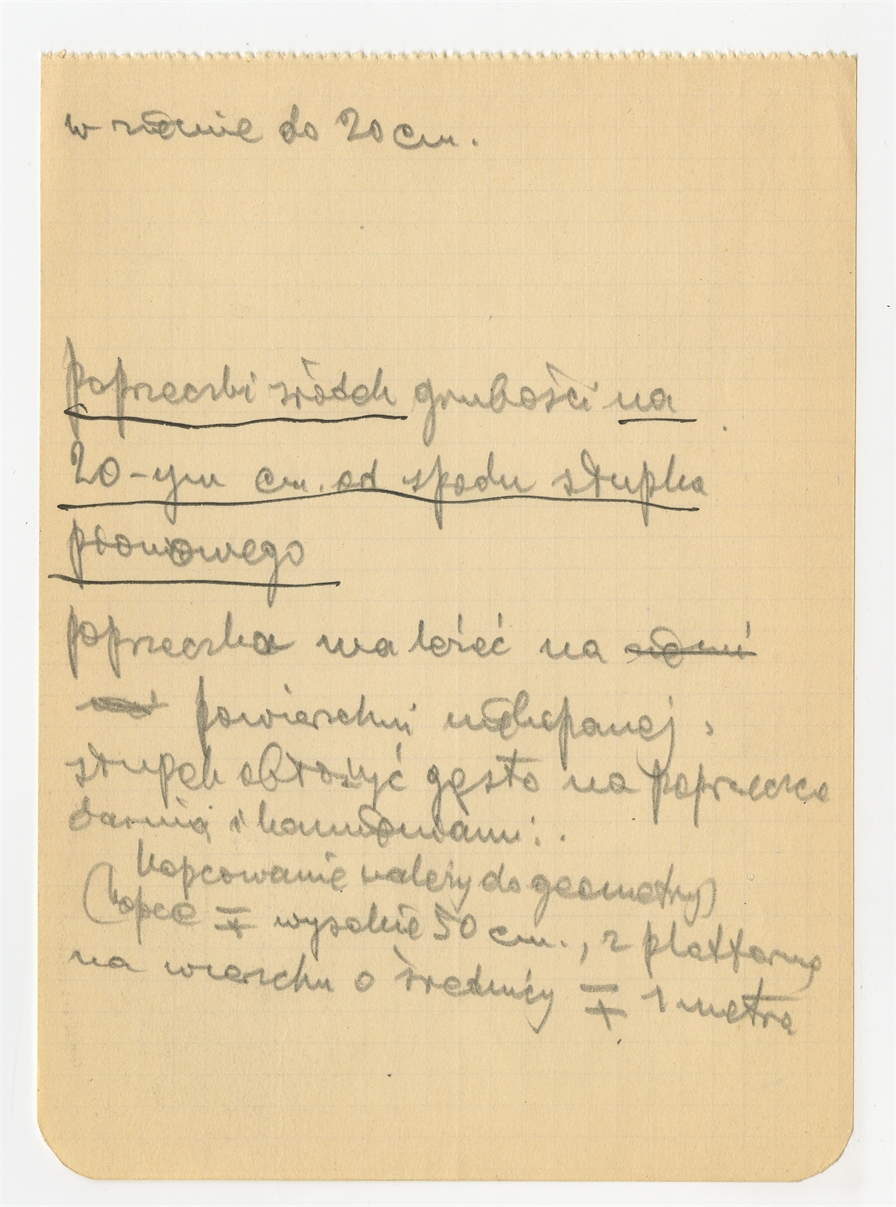 w ziemie do 20 cm.
poprzeczki środek grubości na
20-ym cm. od spodu słupka
pionowego
poprzeczka ma leżeć na
powierzchni niekopanej,
słupek obłożyć gęsto na poprzeczce
darnią i kamieniami.
Kopcowanie należy do geometry)
(kopce ∓ wysokie 50 cm., z platformą
na wierzchu o średnicy ∓ 1 metra